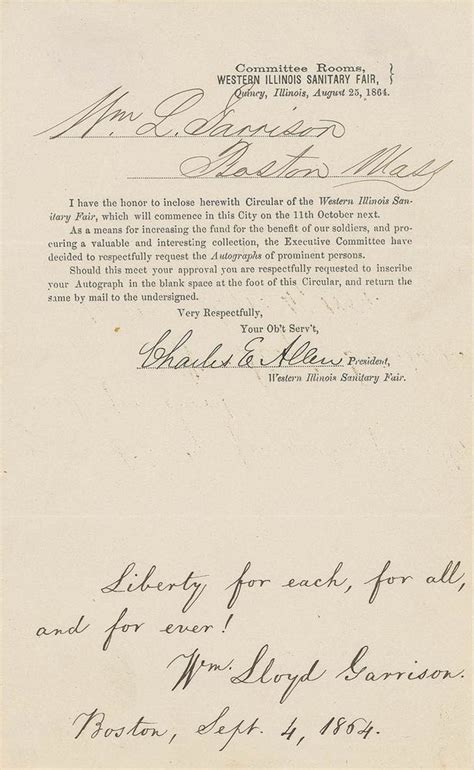 Committee Rooms,
WESTERN ILLINOIS SANITARY FAIR,
Quincy, Illinois, August 25, 1864.
Wm L. Garrison
Boston Mass
I have the honor to inclose herewith Circular of the Western Illinois San-
itary Fair, which will commence in this City on the 11th October next.
As a means for increasing the fund for the benefit of our soldiers, and pro-
curing a valuable and interesting collection, the Executive Committee have
decided to respectfully request the Autographs of prominent persons.
Should this meet your approval you are respectfully requested to inscribe
your Autograph in the blank space at the foot of this Circular, and return the
same by mail to the undersigned.
Very Respectfully,
Your Ob't Serv't,
Charles E Allen President,
Western Illinois Sanitary Fair.
Liberty for each, for all,
and for ever!
Wm. Lloyd Garrison.
Boston, Sept. 4, 1864.